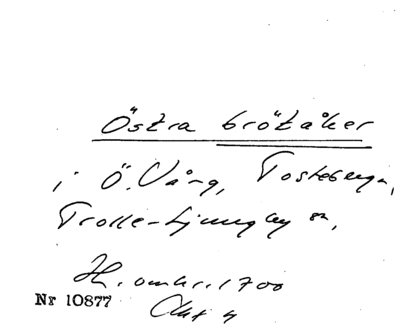 Östra brötåker
i Ö. Vång, Tosteberga,
Trolle-Ljungby sn,
H. omkr. 1700
Nr 10877
Akt 4